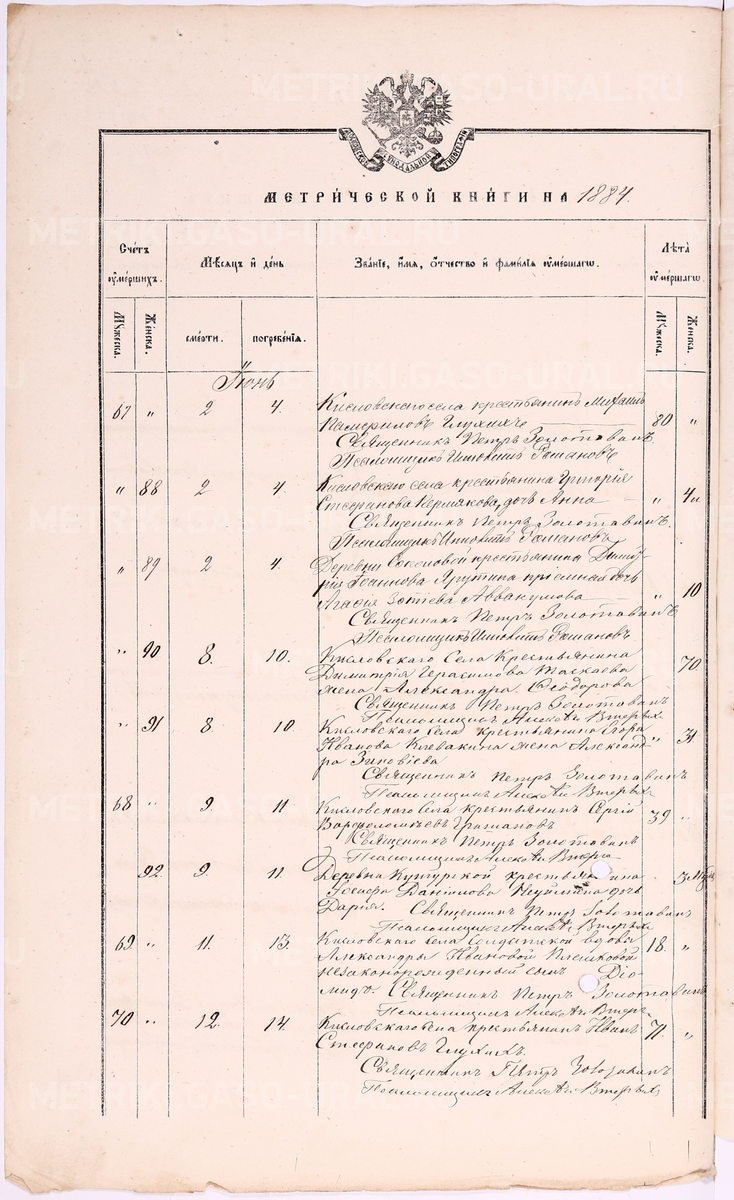 МЕТРИ́ЧЕСКОЙ КНИ́ГИ НА 1884.
Сче́тъ ᲂу҆ме́ршихъ.
Мѣ́сяцъ и҆ де́нь
Зва́нїе, и҆́мѧ, ѻ҆́тчество и҆ фами́лїѧ ᲂу҆ме́ршагѡ.
Лѣ́та ᲂу҆ме́ршагѡ.
Мꙋ́жеска.
Же́нска.
сме́рти.
погребе́нїѧ.
Мꙋ́жеска.
Же́нска.
Іюнь
67 " 2 4. Кисловскаго села крестьянинъ Михаилъ 80 "
Памфиловъ Глухихъ
Священникъ Петръ Золотавинъ
Псаломщикъ Романовъ
" 88 2 4. Кисловскаго села крестьянина Григорія " 4
Стефанова Пермякова, дочь Анна
Священникъ Петръ Золотавинъ.
Псаломщикъ Романовъ
" 89 2 4. Деревни Соколовой крестьянина Димит-
рія Іоаннова Ярутина пріемная дочь
Агафія Зотѣева Аввакумова " 10
Священникъ Петръ Золотавинъ
Псаломщикъ Романовъ
" 90 8. 10. Кисловскаго Села Крестьянина 70
Димитрія Герасимова Таскаева
жена Александра Ѳеодорова
Священникъ Петръ Золотавинъ
Псаломщикъ Алексѣй Вторыхъ
" 91 8. 10 Кисловскаго села крестьянина Егора
Иванова Клевакина жена Александ- " 31
ра Зиновіева
Священникъ Петръ Золотавинъ
Псаломщикъ Алексѣй Вторыхъ
68 " 9. 11 Кисловскаго Села крестьянинъ Сергій 39 "
Варфоломѣевъ
Священникъ Петръ Золотавинъ
Псаломщикъ Алексѣй
92. 9. 11. Деревни крестьянина 3
Іосифа Даніилова дочь
Дарія. Священникъ Петръ Золотавинъ
Псаломщикъ Алексѣй Вторыхъ
69 " 11. 13. Кисловскаго села солдатской вдовы 18. "
Александры Ивановой Плѣшковой
незаконорожденный сынъ Діо-
мидъ. Священникъ Петръ Золотавинъ
Псаломщикъ Алексѣй
70 " 12. 14. Кисловскаго села крестьянинъ Иванъ 71. "
Стефановъ Глухихъ.
Священникъ Петръ Золотавинъ
Псаломщикъ Алексѣй Вторыхъ
METRIKI.GASO-URAL.RU